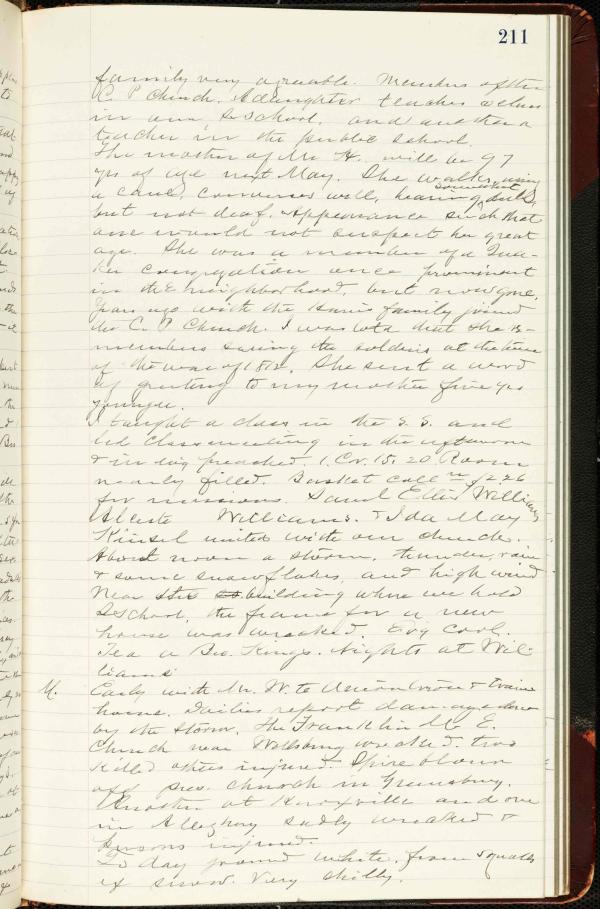 211
family very agreeable. Members of the
C. P. Church. A daughter teaches
in our S. School, and another a
teacher in the public School.
The mother of Mr. H. will be 97
yrs of age next May. She walks, using
a cane, converses well, hearing somewhat dull,
but not deaf. Appearance such that
one would not suspect her great
age. She was a member of a Qua-
ker congregation once prominent
in the neighborhood, but now gone,
Years ago with the Harris family joined
the C. P. Church. I was told that she re-
members seeing the soldiers at the time
of the war of 1812. She sent a word
of greeting to my mother five yrs
younger.
I taught a class in the S. S. and
led Classmeeting in the afternoon
& in evg preached. 1. Cor. 15. 20. Room
nearly filled. Basket coll. $2.26
for missions. Ellis Williams
Williams. & Ida May
Kinsel united with our church.
About noon a storm, thunder, rain
& some snowflakes, and high wind
Near the building where we hold
S School, the frame for a new
house was wrecked. Evg cool.
Tea a Bro. Kings. Nights at Wil-
liams
M. Early with Mr. W. to & train
home. Dailies report damage done
by the storm. The Franklin M. E.
Church near Wellsburg wrecked. two
killed others injured. Spire blown
off pres. church in Greensburg.
Another at Knoxville and one
in Allegheny badly wrecked &
persons injured.
To day ground white, from squalls
of snow. Very chilly.